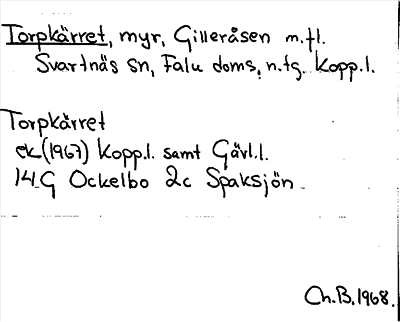 Torpkärret, myr, Gilleråsen m.fl.
Svartnäs sn, Falu doms, n.tg. Kopp.l.
Torpkärret
ek (1967) Kopp.l. samt Gävl.l.
14G Ockelbo 2c Spaksjön.
Ch.B. 1968.